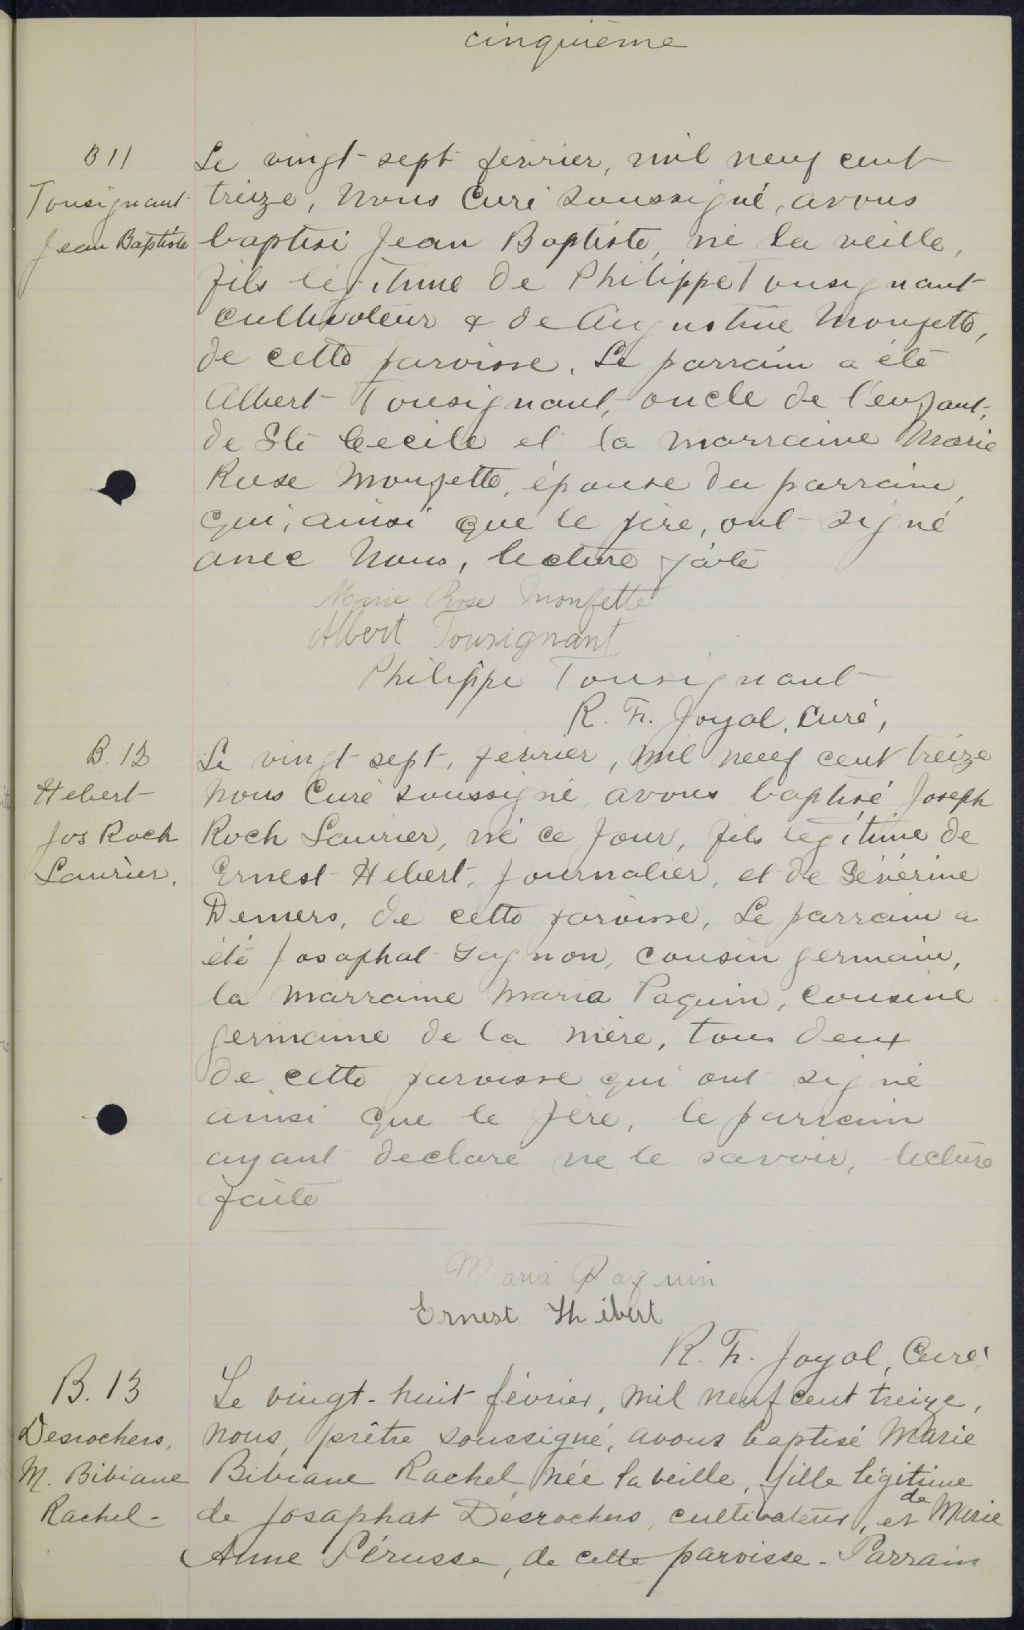 cinquième
B 11
Tousignant
Jean Baptiste
Le vingt-sept février, mil neuf cent
treize, Nous Curé soussigné, avons
baptisé Jean Baptiste, né la veille,
fils légitime de Philippe Tousignant
cultivateur & de Augustine Monfette,
de cette paroisse. Le parrain a été
Albert Tousignant, oncle de l'enfant,
de Ste Cecile et la marraine Marie
Rose Monfette, épouse du parrain,
qui, ainsi que le père, ont signé
avec Nous, lecture faite
Marie Rose Monfette
Albert Tousignant
Philippe Tousignant
R. Fr. Joyal, Curé,
B. 12
Hebert
Jos Roch
Laurier.
Le vingt sept, fevrier, mil neuf cent treize
Nous Curé soussigné, avons baptisé Joseph
Roch Laurier, né ce jour, fils légitime de
Ernest Hebert, journalier, et de Sévérine
Demers, de cette paroisse, Le parrain a
été Josaphat Gagnon, cousin germain,
la marraine Maria Paquin, cousine
germaine de la mère, tous deux
de cette paroisse qui ont signé
ainsi que le père, le parrain
ayant declaré ne le savoir, lecture
faite
Maria Paquin
Ernest Hibert
R. Fr. Joyal, Curé
B. 13
Desrochers,
M. Bibiane
Rachel-
Le vingt-huit février, mil neuf cent treize,
nous, prêtre soussigné, avons baptisé Marie
Bibiane Rachel, née la veille, fille légitime
de Josaphat Desrochers, cultivateur, et de Marie
Anne Pérusse, de cette paroisse. Parrain